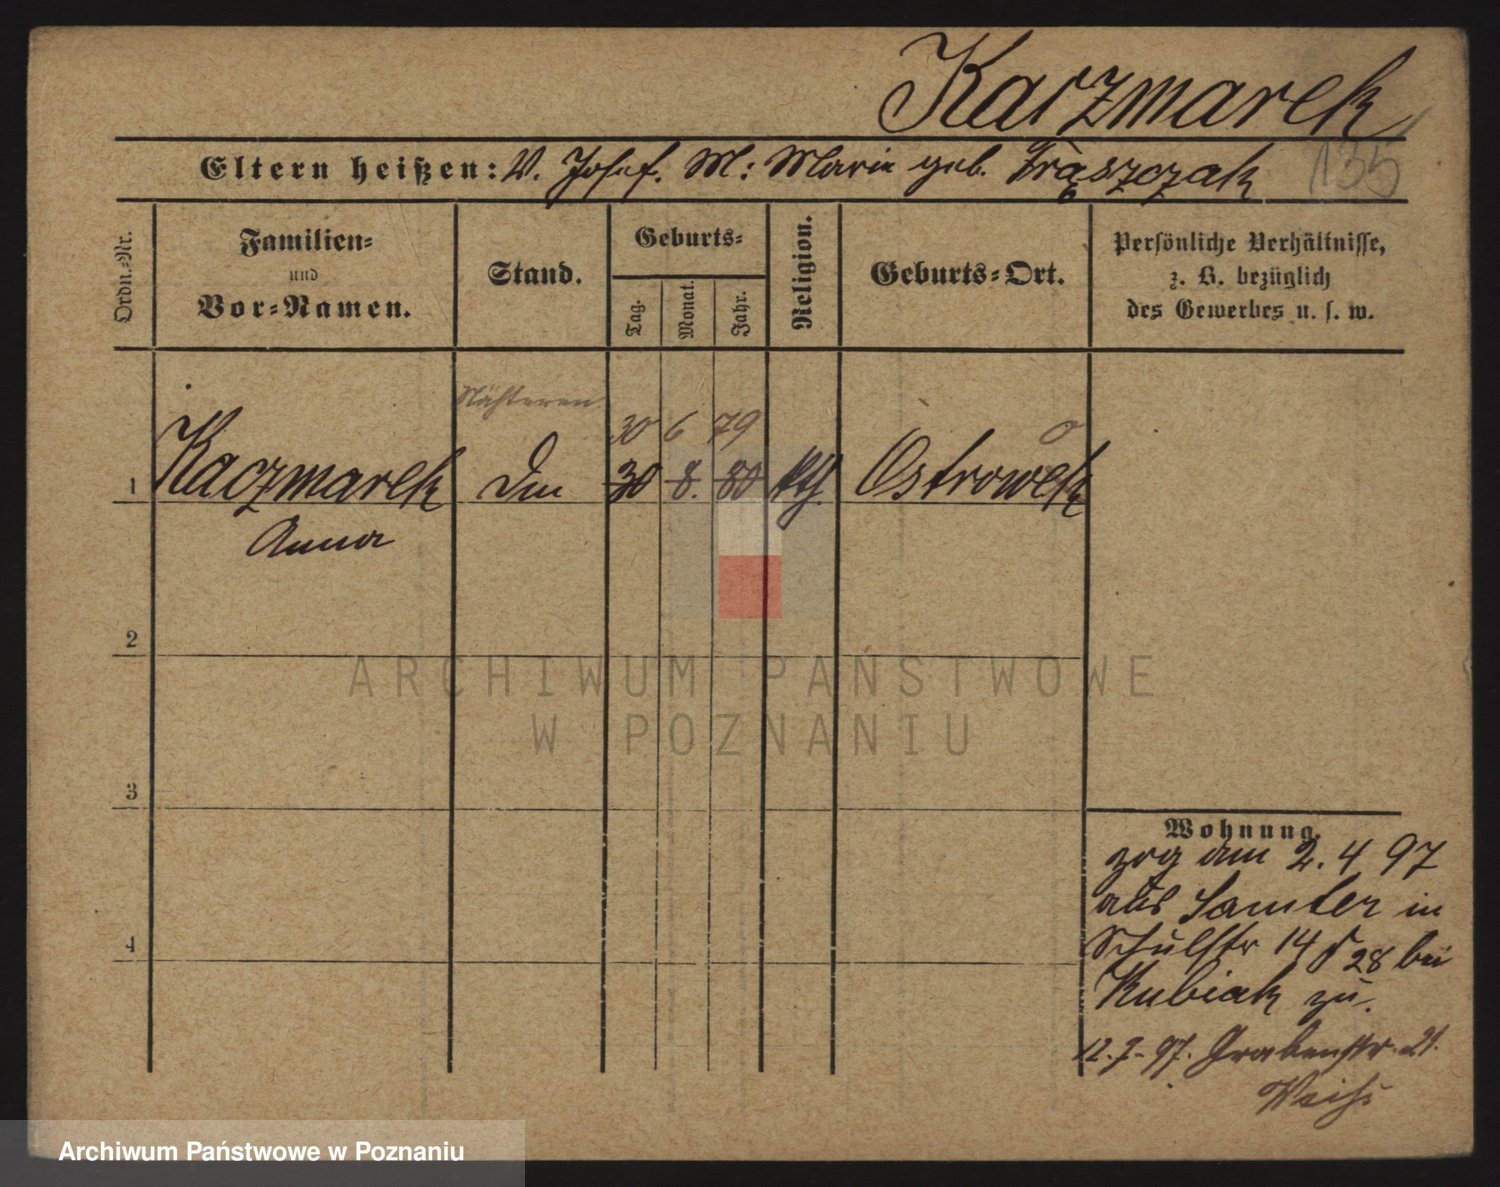 Kaczmarek
135
Eltern heißen: V. Josef. M: Marie geb. Frąszczak
Ordn.-Nr.
Familien-
und
Vor-Namen.
Stand.
Geburts-
Tag.
Monat.
Jahr.
Religion.
Geburts-Ort.
Persönliche Verhältnisse,
z. B. bezüglich
des Gewerbes u. s. w.
Nähteren
30 6 79 o
1 Kaczmarek 30 8. 80 kth. Ostrowek
Anna
2
ARCHIWUM PAŃSTWOWE
W POZNANIU
3
Wohnung.
zog am 2. 4 97
aus Samter in
4
Schulstr 14 28 bei
Kubiak zu.
12. 7. 97. Grabenstr. 21.
Weiß
Archiwum Państwowe w Poznaniu